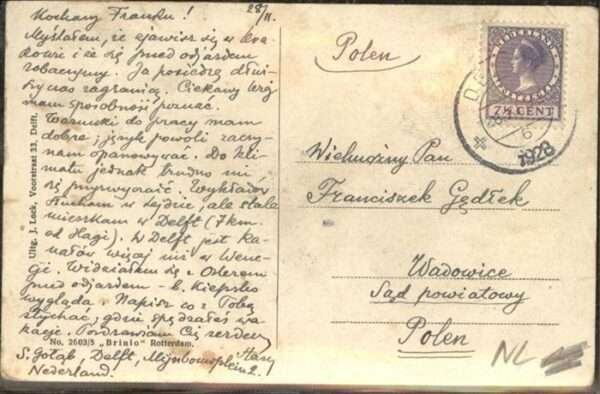 28/II.
Kochany Franku!
Myślałem, że zjawisz się w Kra-
kowie i że się przed odjazdem
zobaczymy. Ja posiedzę dłuż-
szy czas zagranicą. Ciekawy kraj
mam sposobność poznać.
Warunki do pracy mam
dobre; język powoli zaczy-
nam opanowywać. Do kli-
matu jednak trudno mi
się przyzwyczaić. Wykładów
słucham w Lejdzie, ale stale
mieszkam w Delft (7 km.
od Hagi). W Delft jest ka-
nałów więcej niż w Wene-
cji. Widziałem się z
przed odjazdem - b. kiepsko
wygląda. Napisz co z Tobą
słychać; gdzie spędzałeś wa-
kacje. Pozdrawiam Cię serdecz
S. Gołąb, Delft, Mijnbouwplein 2.
Nederland.
Uitg. J. Lock, Voorstraat 33, Delft.
No. 2603/5 „Brinio" Rotterdam.
Polen
NEDERLAND
7½ CENT
1928
Wielmożny Pan
Franciszek Gędłek
Wadowice
Sąd powiatowy
Polen
NL